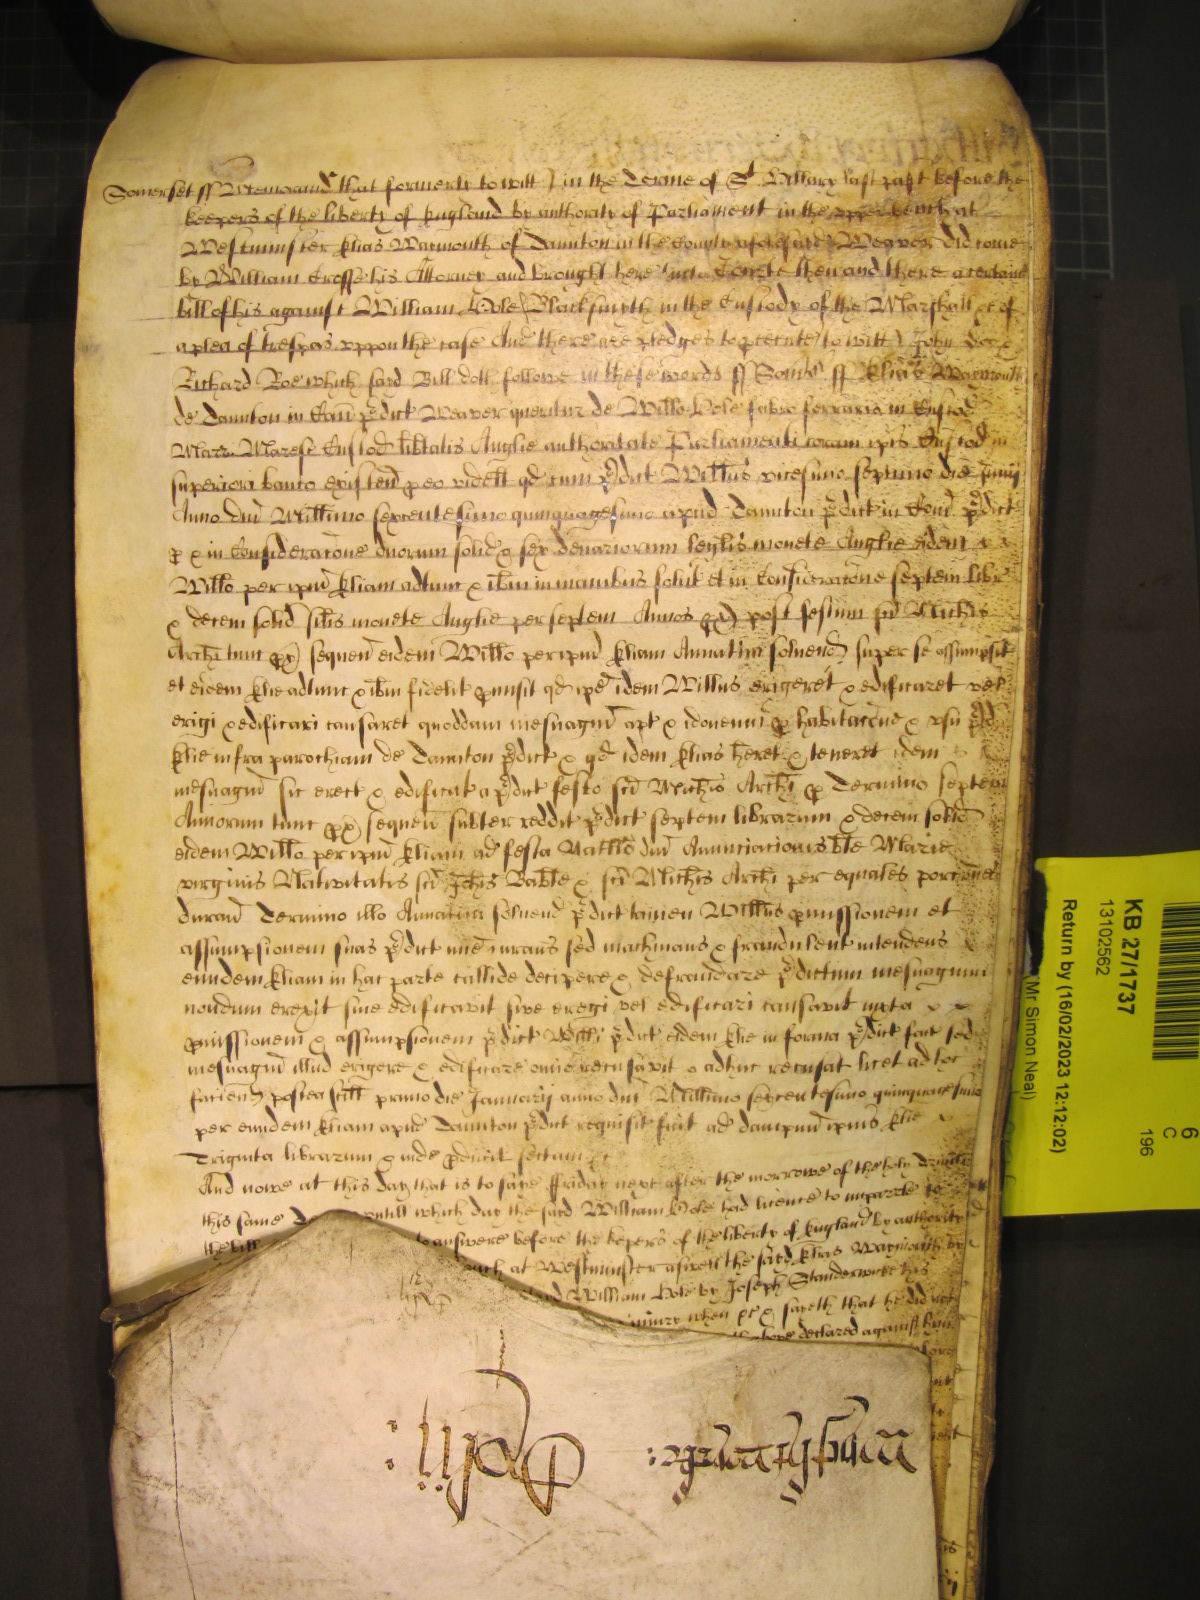 Somerset ss Memorand that formerly to witt in the Terme of St Hillary last past before the
keepers of the liberty of England by authority of Parliament in the upper bench at
Westminster Elias Warmouth of Taunton in the County aforesaid Weaver did come
by William Crosse his Attorney and brought here into Courte then and there a certaine
bill of his against William Hole Blacksmyth in the Custody of the Marshall &c of
a plea of trespas uppon the case And there are pledges to psecute to witt John Doe &
Richard Roe which said Bill doth followe in these words ss Somst ss Elias Warmouth
de Taunton in Com pdict Weaver queritur de Willo Hole fabro ferrario in Custod
Marr Maresc Custod libtatis Anglie authoritate Parliamenti coram ipis Custod in
superiori banco existen p eo videlt qd cum pdict Willus vicesimo septimo die Junij
Anno dni Millimo sexcentesimo quinquagesimo apud Taunton pdict in Com pdict
p & in Consideracone duorum solid & sex denariorum leglis monete Anglie eidem
Willo per ipm Eliam adtunc & ibm in manibus solut et in Consideracone septem libr
& decem solid silis monete Anglie per septem Annos px post festum sci Michis
Archi tunc px sequen eidem Willo per ipm Eliam Annatim solvend super se assumpsit
et eidem Elie adtunc & ibm fidelit pmisit qd ipe idem Willus erigeret & edificaret vel
erigi & edificari causaret quoddam mesuagm apt & idoneum p habitacone & usu pd
Elie infra parochiam de Taunton pdict & qd idem Elias heret & teneret idem
mesuagm sic erect & edificat a pdict festo sci Michis Archi p Termino septem
Annorum tunc px sequen subter reddit pdict septem librarum & decem solid
eidem Willo per ipm Eliam ad festa Natlis dni Anunciacionis bte Marie
virginis Nativitatis sci Johis Bapte & sci Michis Archi per equales porcones
durand Termino illo Annatim solvend pdict tamen Willus pmissionem et
assumpsionem suas pdict mie curans sed machinans & fraudulent intendens
eundem Eliam in hac parte callide decipere & defraudare pdictum mesuagium
nondum erexit sive edificavit sive eregi vel edificari causavit iuxta
pmissionem & assumpsionem pdict Willi pdict eidem Elie in forma pdict fact sed
mesuagm illud erigere & edificare omie recusavit & adhuc recusat licet ad hoc
faciend postea scilt primo die Januarij anno dni Millimo sexcentesimo quinquagesimo
per eundem Eliam apud Taunton pdict requisit fuit ad dampnu ipius Elie
Triginta librarum & inde pducit sectam &c
And nowe at this day that is to saye ffriday next after the morrowe of the holy Trinitie
this same untill which day the said William Hole had licence to imparle to
the bill to answere before the kepers of the liberty of England by authority
at Westminster aswell the said Elias Warmouth by
William Hole by Joseph Standerwicke his
iniury when &c & sayeth that he did not
above declared against him
Rolij:
KB 27/1737
13102562
Return by (16/02/2023 12:12:02)
(Mr Simon Neal)
6
C
196